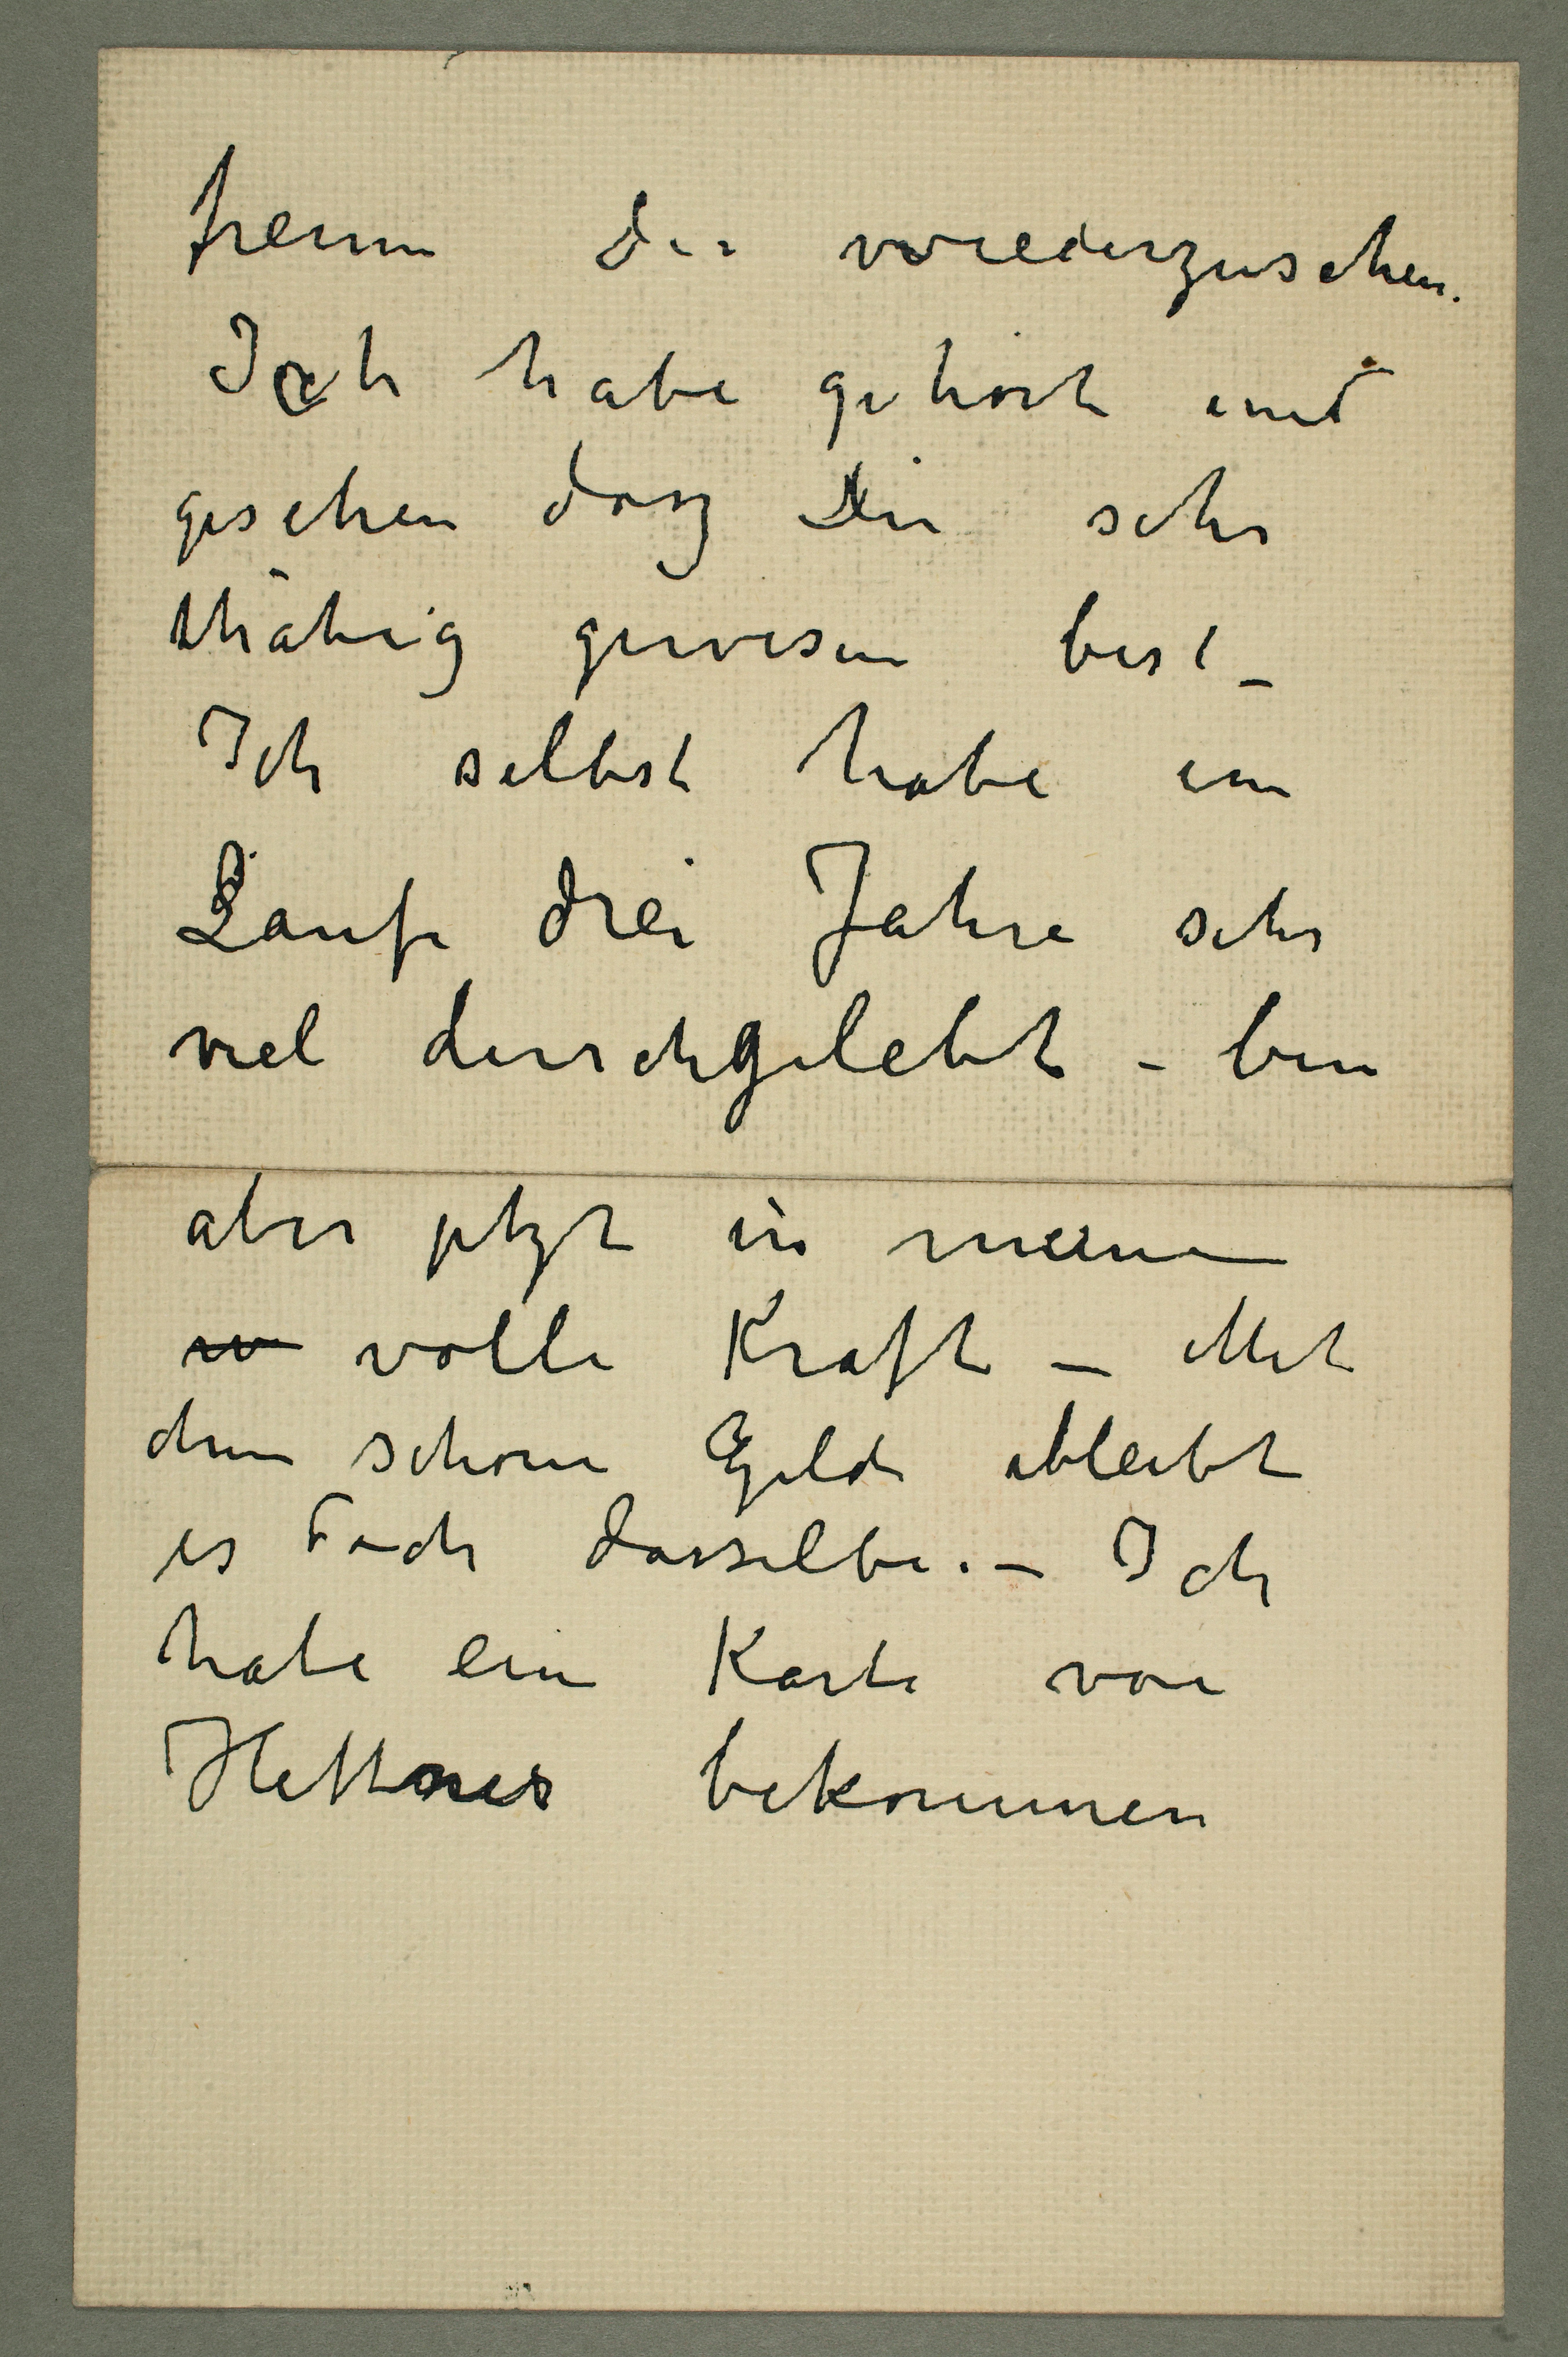 freuen dir wiederzusehen.
Ich habe gehört und
gesehen dasz Du sehr
thätig gewesen bist –
Ich selbst habe im
Laufe drei Jahre sehr
viel durchgelebt – bin
aber jetzt in meinen
volle Kraft – Mit
dem schöne Gelde bleibt
es doch dasselbe. – Ich
habe ein Karte von
Hettner bekommen